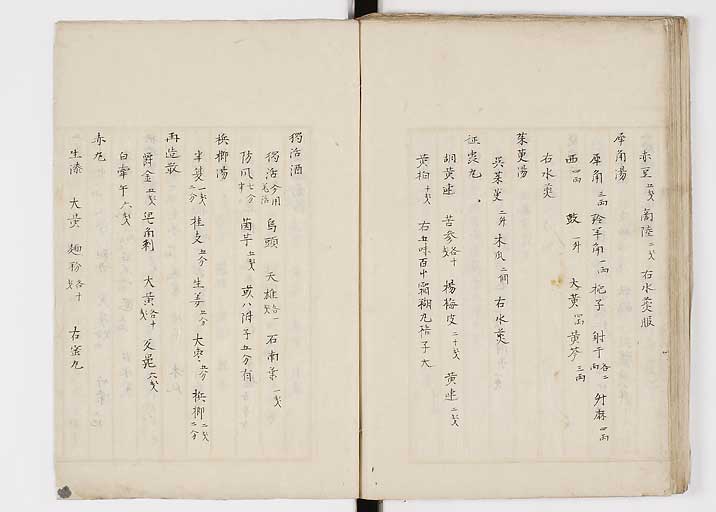 赤豆 五戔 商陸 二戔 右水煑服
犀角湯
犀角 三両 羚羊角 一両 梔子 射干 各二両 升麻 四両
豉 一升 大黄 黄芩 三両
右水煑
茱萸湯
呉茱萸 二升 木瓜 二個 右水煑
丸
胡黄連 苦参 各十戔 楊梅皮 二十戔 黄連 二戔
黄柏 十戔 右五味 糊丸梧子大
獨活酒
獨活 今用羌活 烏頭 天雄 各一戔 石南葉 一戔
防風 七分半 茵芋 五戔 或八附子五分有
梹榔湯
半夏 一戔二分 桂支 五分 生姜 五分 大枣 五分 梹榔 二戔二分
再造散
欝金 五戔 皂角刺 大黄 各十戔 六戔
白牽牛 六戔
赤丸
生漆 大黄 麺粉 各十戔 右為丸